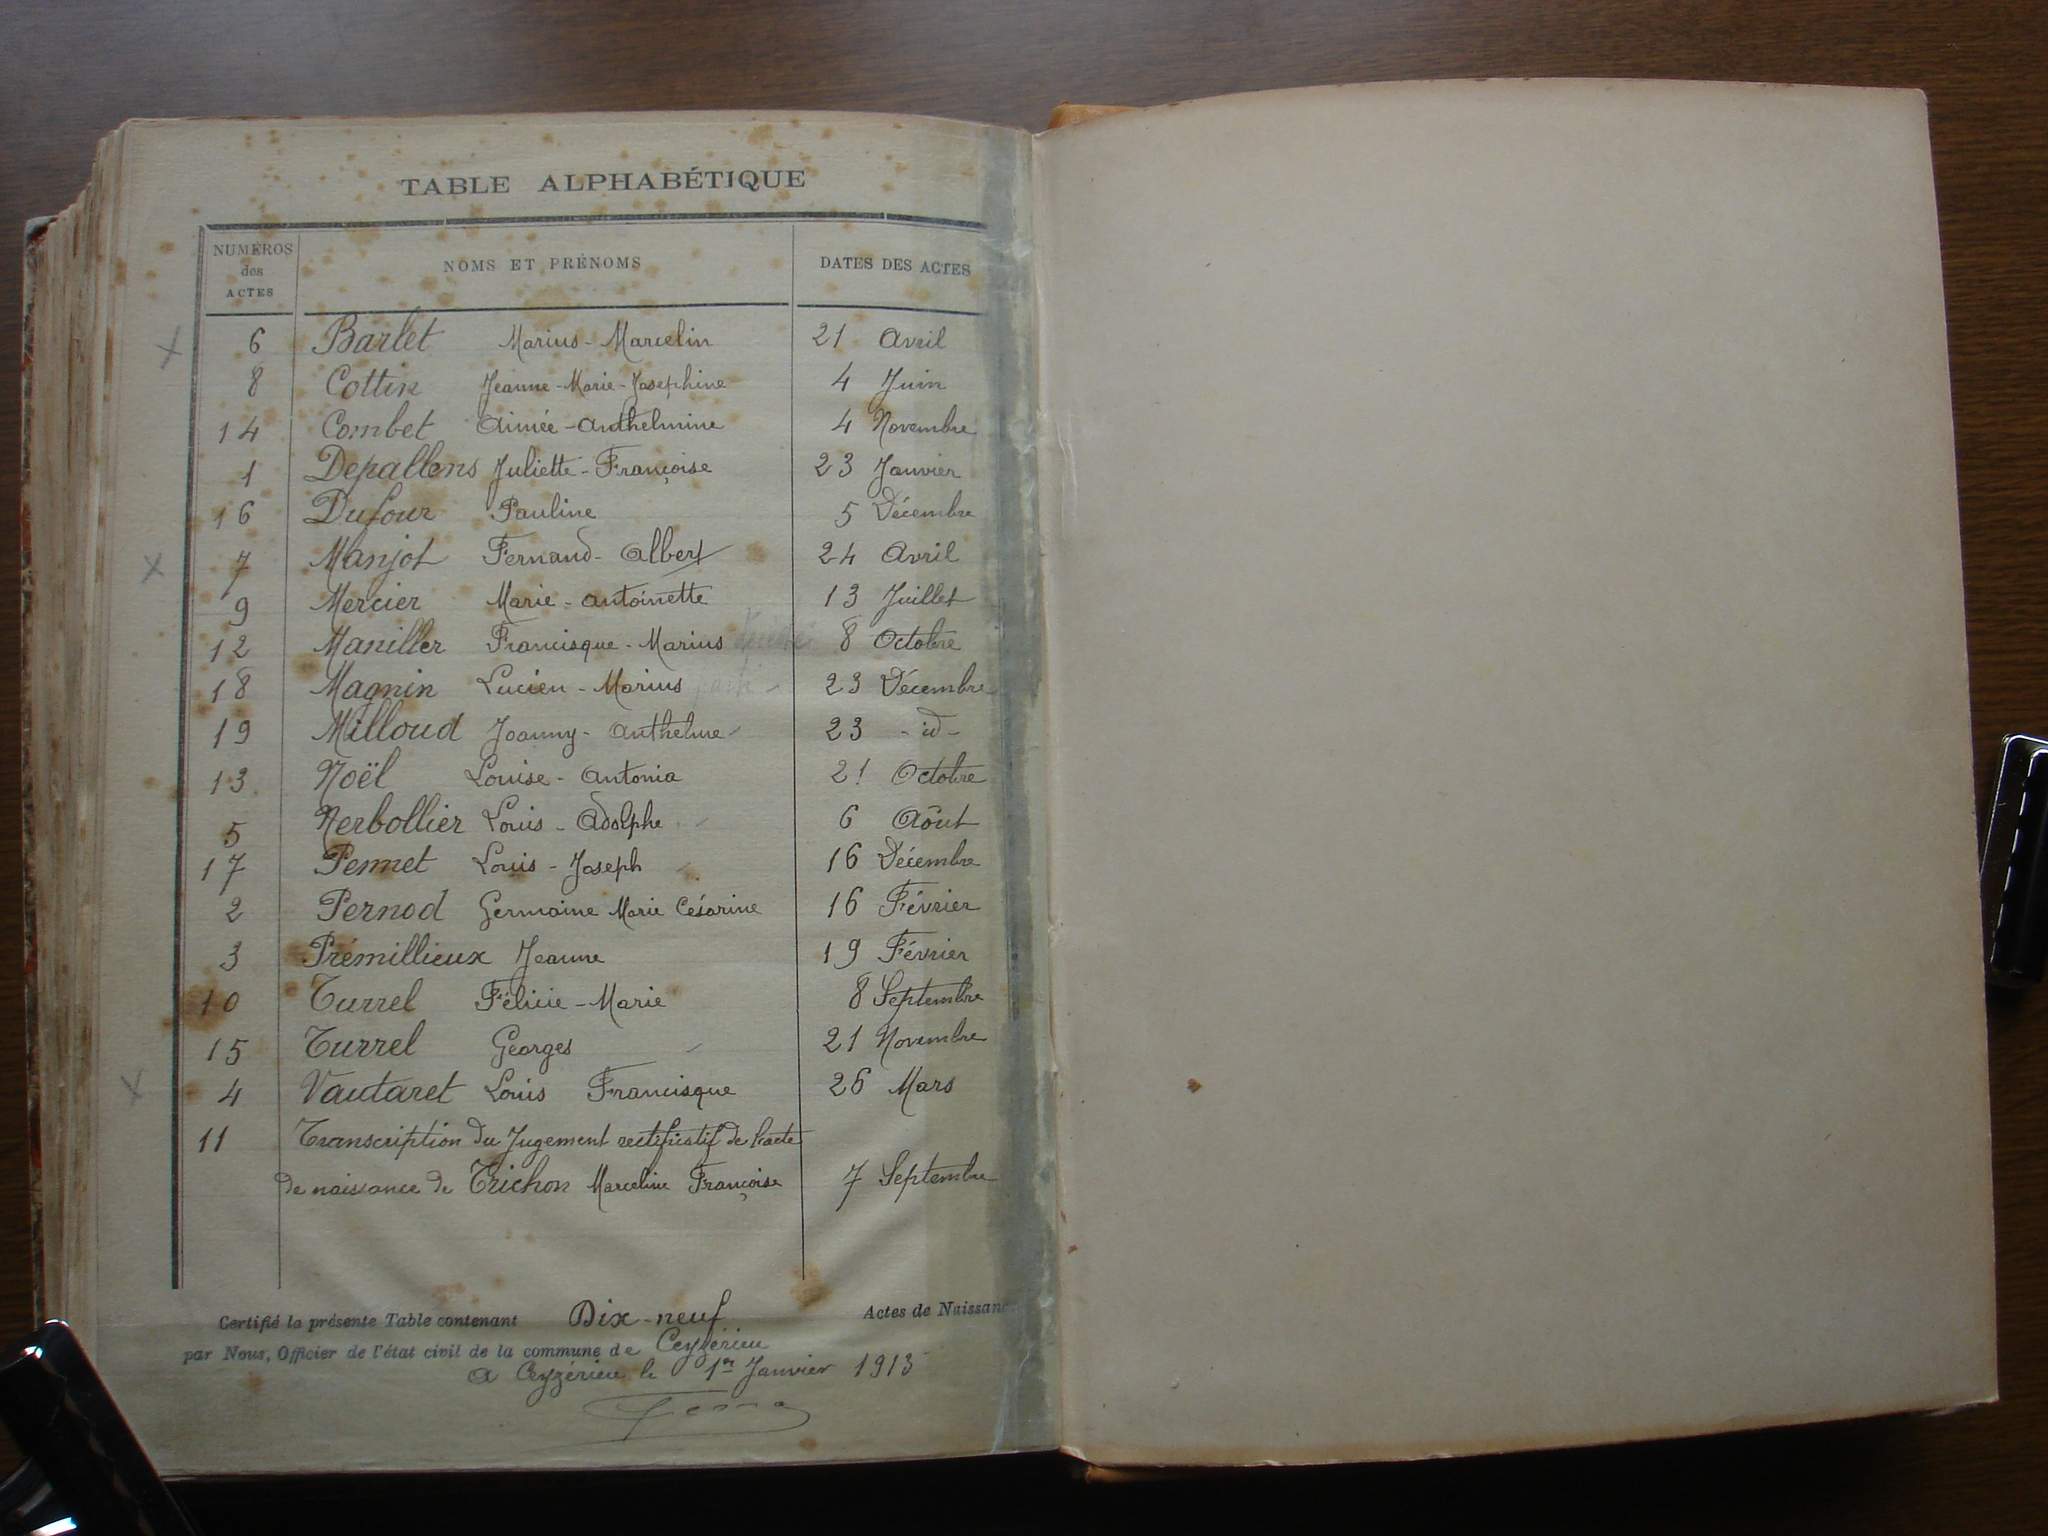 TABLE ALPHABÉTIQUE
NUMÉROS des ACTES NOMS ET PRÉNOMS DATES DES ACTES
6 Barlet Marius-Marcelin 21 Avril
8 Cottin Jeanne-Marie-Josephine 4 Juin
14 Combet Aimée-Anthelmine 4 Novembre
1 Depallens Juliette-Françoise 23 Janvier
16 Dufour Pauline 5 Décembre
7 Manjot Fernand-Albert 24 Avril
9 Mercier Marie-Antoinette 13 Juillet
12 Maniller Francisque-Marius 8 Octobre
18 Magnin Lucien-Marius parti 23 Décembre
19 Milloud Joanny-Anthelme 23 -id-
13 Noël Louise-Antonia 21 Octobre
5 Nerbollier Louis-Adolphe 6 Aôut
17 Pennet Louis-Joseph 16 Décembre
2 Pernod Germaine Marie Césarine 16 Février
3 Prémillieux Jeanne 19 Février
10 Turrel Félicie-Marie 8 Septembre
15 Turrel Georges 21 Novembre
4 Vautaret Louis Francisque 26 Mars
11 Transcription du Jugement rectificatif de l'acte
de naissance de Trichon Marceline Françoise 7 Septembre
Certifié la présente Table contenant Dix-neuf Actes de Naissanc
par Nous, Officier de l'état civil de la commune de Ceyzérieu
A Ceyzérieu le 1er Janvier 1913